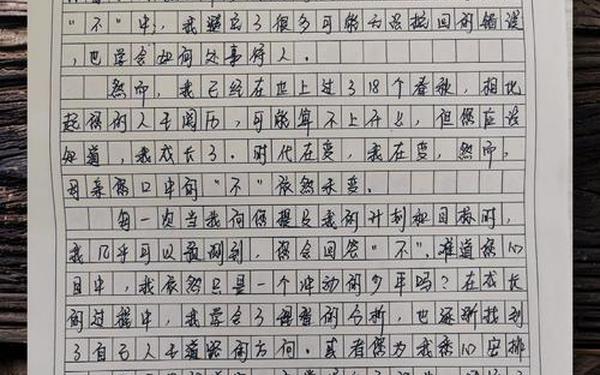 "不"中，我避免了很多可能无法挽回的错误
，也学会如何处事待人。
然而，我已经在世上过了18个春秋，相比
起您的人生阅历，可能算不上什么，但您应该
知道，我成长了。时代在变，我在变，然而，
母亲您口中的"不"依然未变。
每一次当我向您提及我的计划和目标时，
我几乎可以预测到，您会回答"不"。难道您心
目中，我依然只是一个冲动的少年吗？在成长
的过程中，我学会了理智的分析，也逐渐找到
了自己人生道路的方向。或者您为我悉心安排